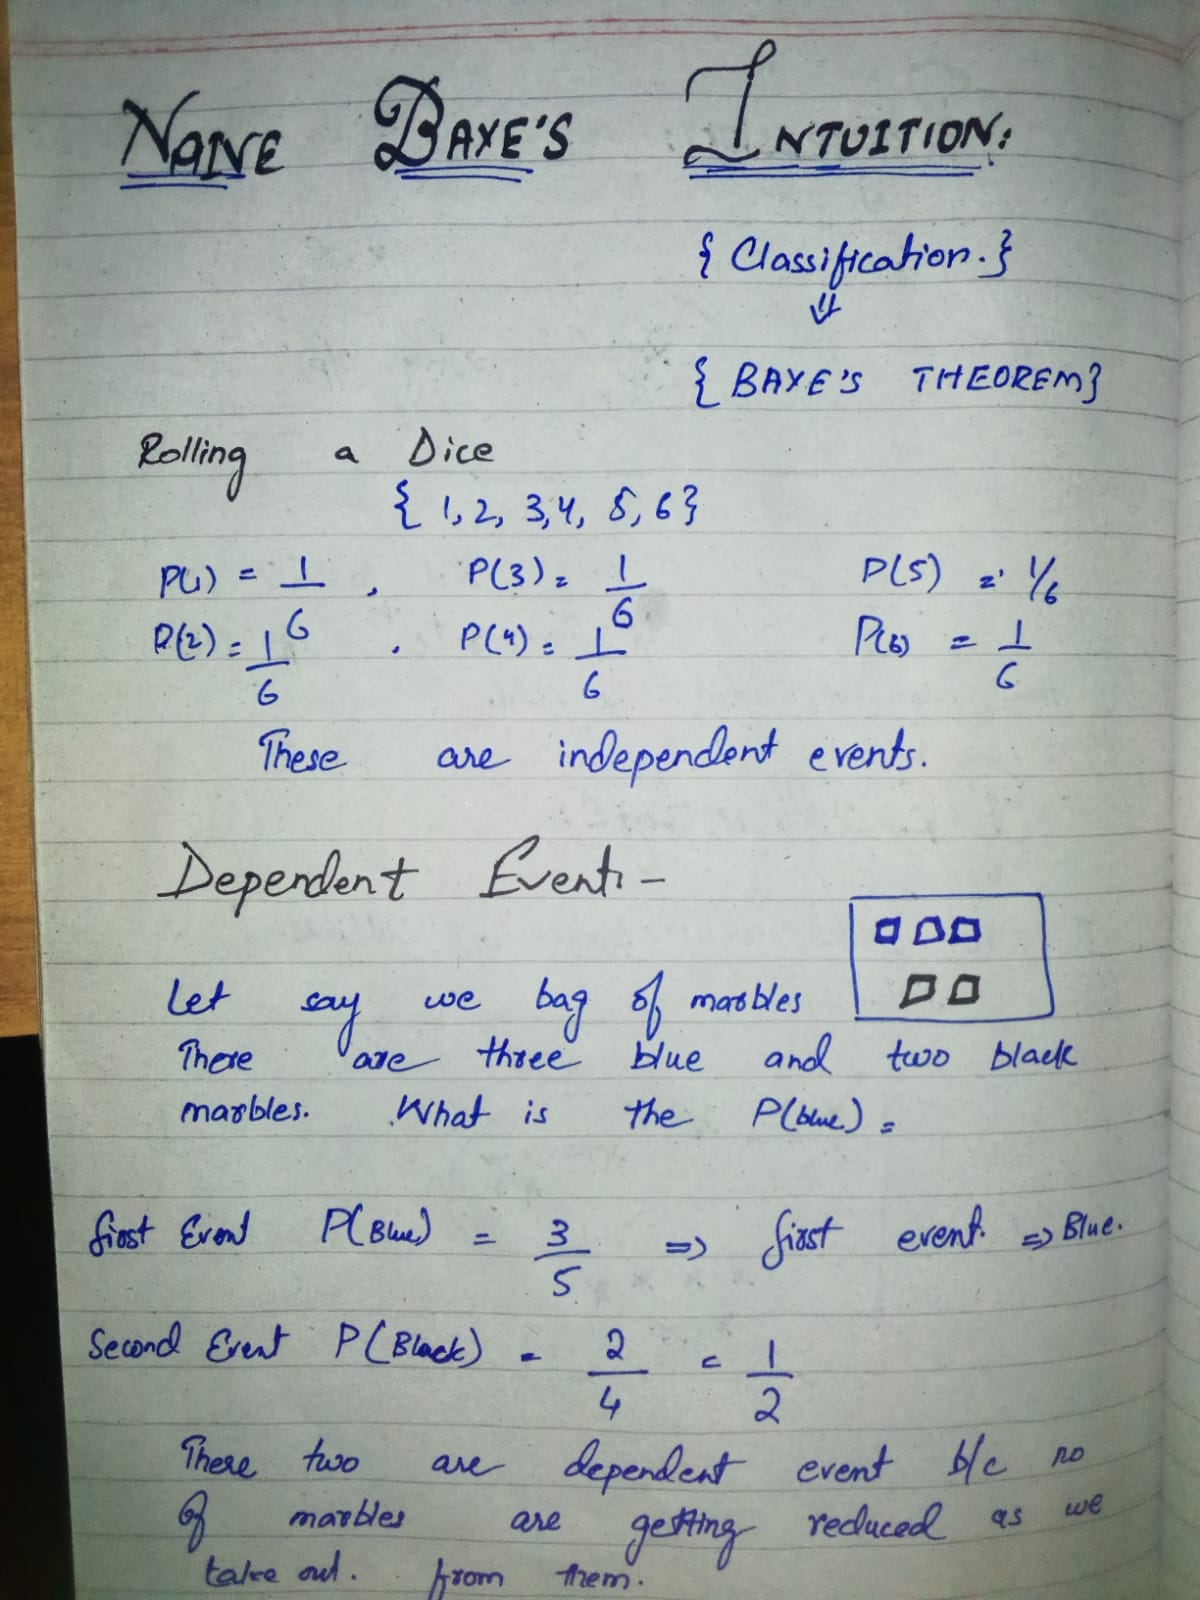 NAIVE BAYE'S INTUITION:
{ Classification. }
⇓
{ BAYE'S THEOREM }
Rolling a Dice
{ 1, 2, 3, 4, 5, 6 }
P(1) = 1/6 , P(3) = 1/6 P(5) = 1/6
P(2) = 1/6 , P(4) = 1/6 P(6) = 1/6
These are independent events.
Dependent Events -
Let say we bag of marbles
There are three blue and two black
marbles. What is the P(blue) =
first Event P(Blue) = 3/5 => first event. => Blue.
Second Event P(Black) = 2/4 = 1/2
These two are dependent event b/c no
of marbles are getting reduced as we
take out. from them.